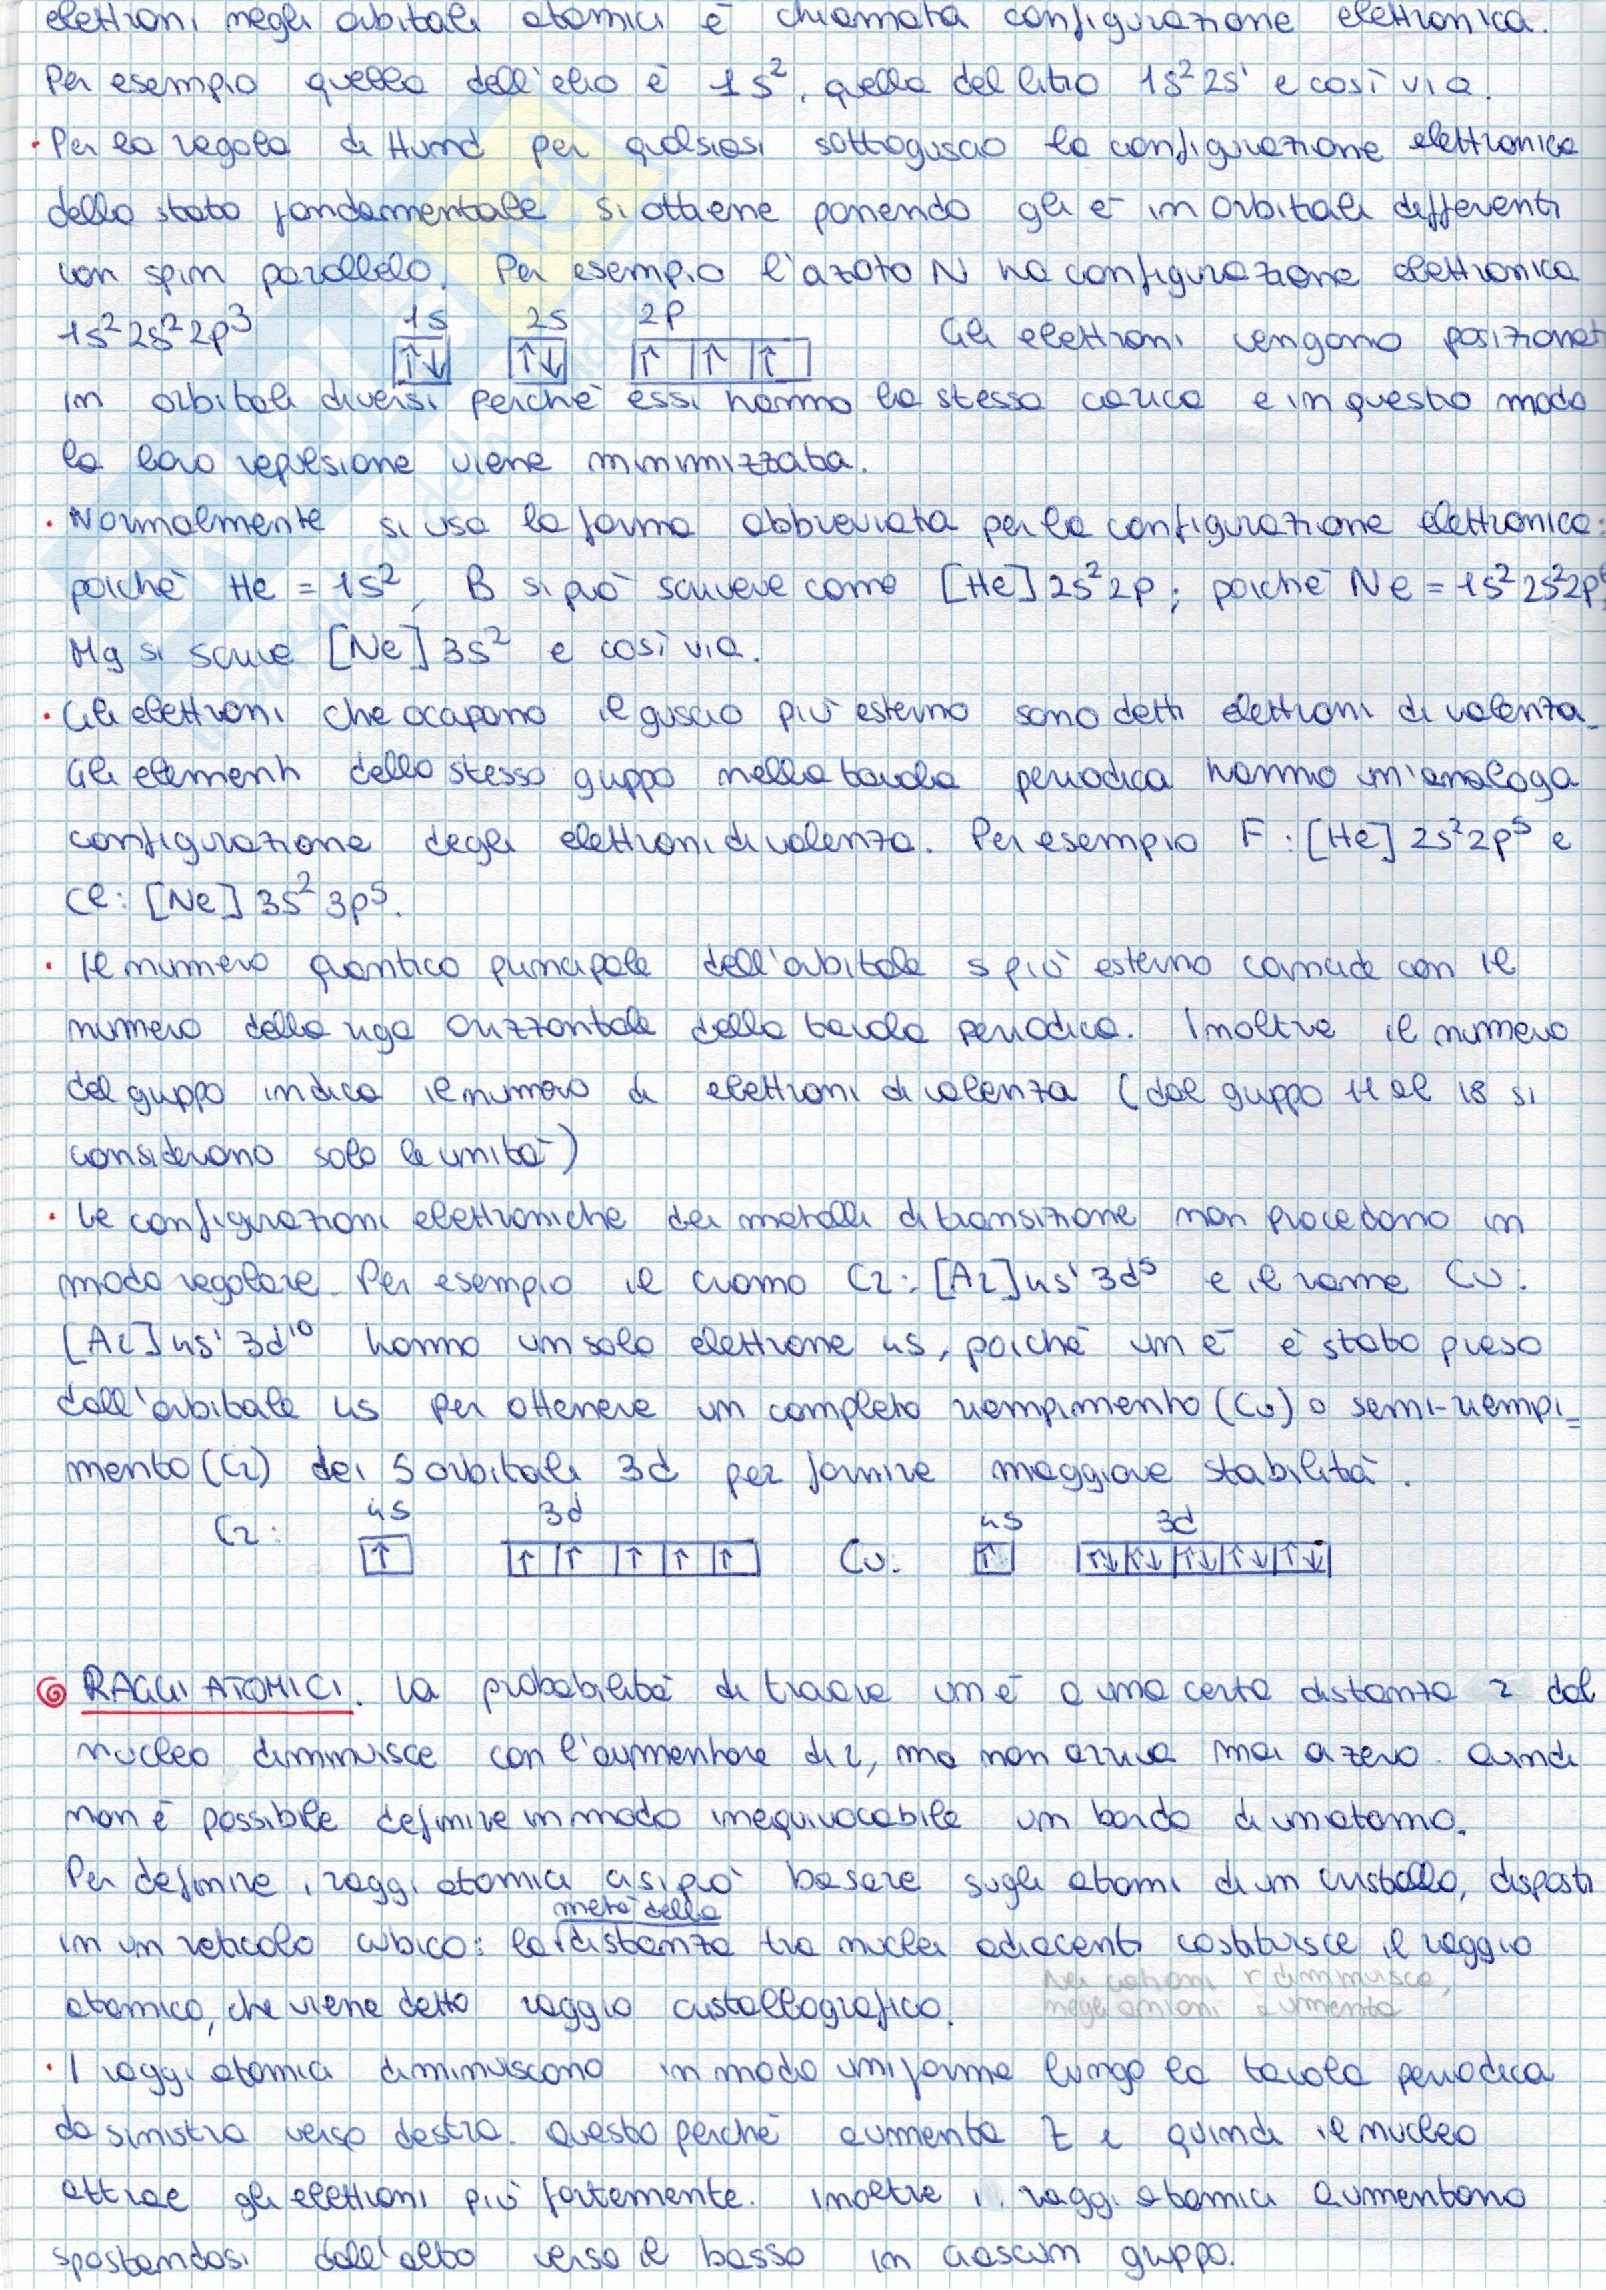 elettroni negli orbitali atomici è chiamata configurazione elettronica.
Per esempio quella dell'elio è 1s², quella del litio 1s² 2s¹ e così via.
• Per la regola di Hund per qualsiasi sottoguscio la configurazione elettronica
dello stato fondamentale si ottiene ponendo gli e⁻ in orbitali differenti
con spin parallelo. Per esempio l'azoto N ha configurazione elettronica
1s 2s 2p
1s² 2s² 2p³ ↑↓ ↑↓ ↑ ↑ ↑ Gli elettroni vengono posizionati
in orbitali diversi perché essi hanno la stessa carica e in questo modo
la loro repulsione viene minimizzata.
• Normalmente si usa la forma abbreviata per la configurazione elettronica:
poiché He = 1s², B si può scrivere come [He] 2s² 2p; poiché Ne = 1s² 2s² 2p⁶,
Mg si scrive [Ne] 3s² e così via.
• Gli elettroni che occupano il guscio più esterno sono detti elettroni di valenza.
Gli elementi dello stesso gruppo nella tavola periodica hanno un'analoga
configurazione degli elettroni di valenza. Per esempio F: [He] 2s² 2p⁵ e
Cl: [Ne] 3s² 3p⁵.
• Il numero quantico principale dell'orbitale s più esterno coincide con il
numero della riga orizzontale della tavola periodica. Inoltre il numero
del gruppo indica il numero di elettroni di valenza (dal gruppo 11 al 18 si
considerano solo le unità)
• Le configurazioni elettroniche dei metalli di transizione non procedono in
modo regolare. Per esempio il cromo Cr: [Ar] 4s¹ 3d⁵ e il rame Cu:
[Ar] 4s¹ 3d¹⁰ hanno un solo elettrone 4s, poiché un e⁻ è stato preso
dall'orbitale 4s per ottenere un completo riempimento (Cu) o semi-riempi=
mento (Cr) dei 5 orbitali 3d per fornire maggiore stabilità.
4s 3d 4s 3d
Cr: ↑ ↑ ↑ ↑ ↑ ↑ Cu: ↑ ↑↓ ↑↓ ↑↓ ↑↓ ↑↓
RAGGI ATOMICI. La probabilità di trovare un e⁻ a una certa distanza r dal
nucleo diminuisce con l'aumentare di r, ma non arriva mai a zero. Quindi
non è possibile definire in modo inequivocabile un bordo di un atomo.
Per definire i raggi atomici ci si può basare sugli atomi di un cristallo, disposti
metà della
in un reticolo cubico: la distanza tra nuclei adiacenti costituisce il raggio
Nei cationi r diminuisce,
atomico, che viene detto raggio cristallografico.
negli anioni aumenta
• I raggi atomici diminuiscono in modo uniforme lungo la tavola periodica
da sinistra verso destra. Questo perché aumenta Z e quindi il nucleo
attrae gli elettroni più fortemente. Inoltre i raggi atomici aumentano
spostandosi dall'alto verso il basso in ciascun gruppo.